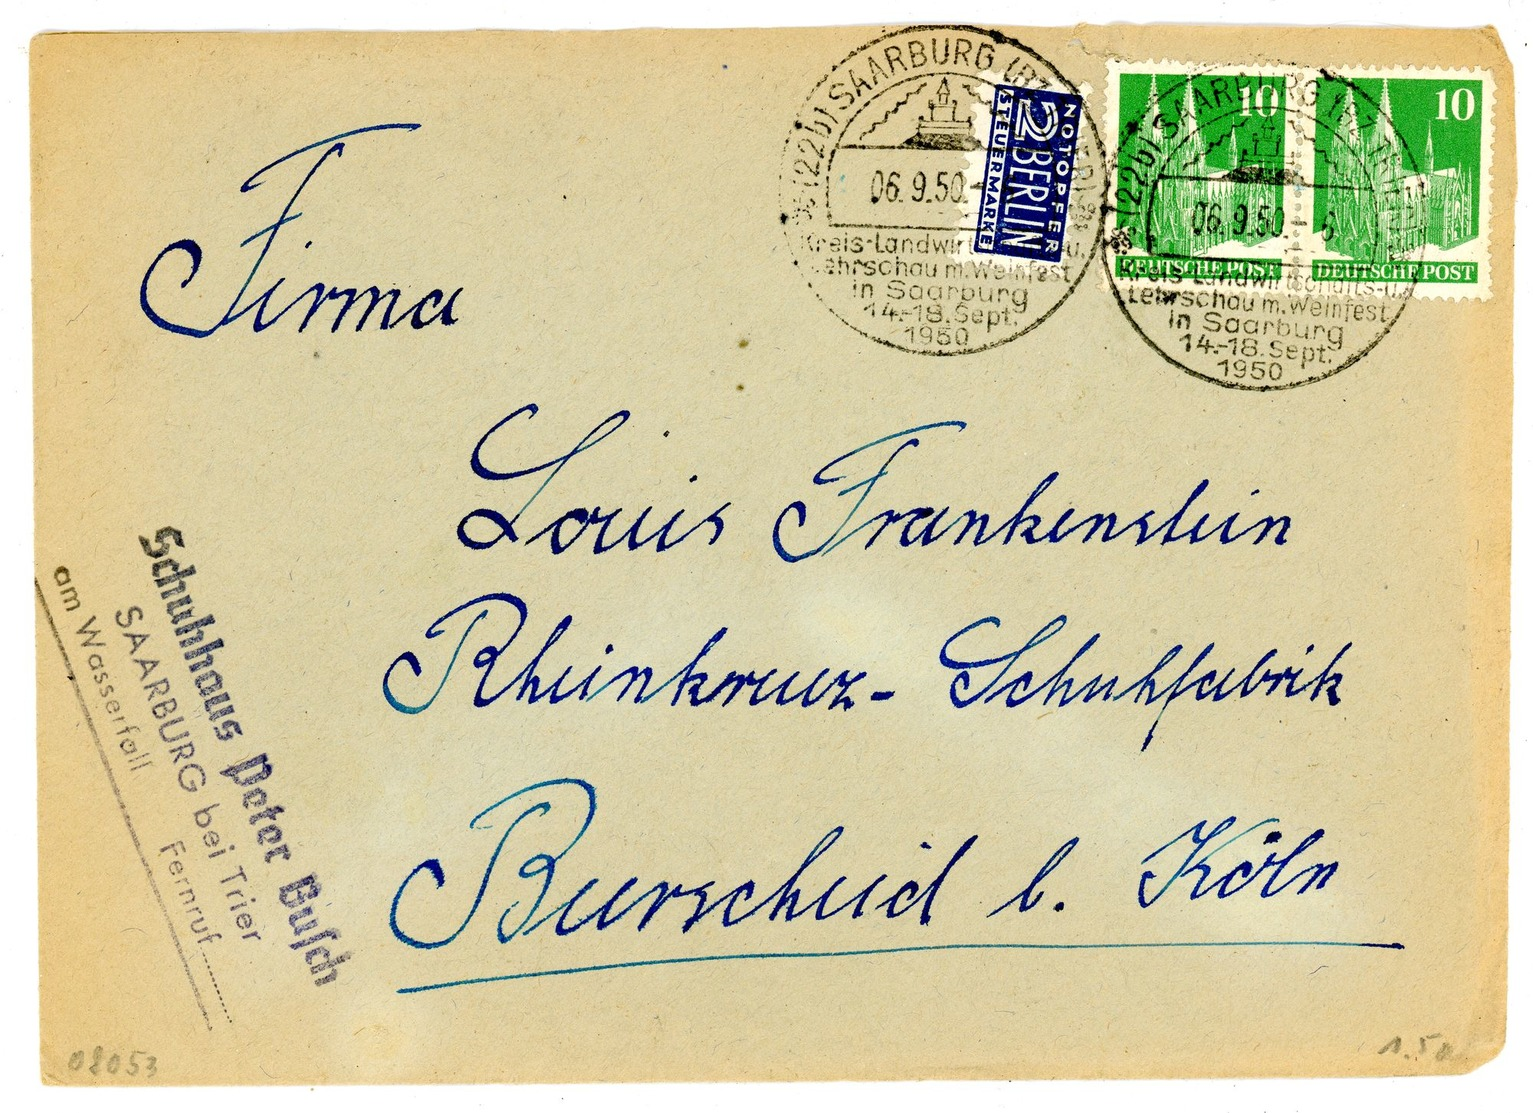 (22b) SAARBURG (BZ.
06.9.50.-
Kreis-Landwirtschafts-u.
Lehrschau m. Weinfest
in Saarburg
14.-18. Sept.
1950
NOTOPFER
2 BERLIN
STEUERMARKE
10
DEUTSCHE POST
10
DEUTSCHE POST
(22b) SAARBURG (BZ. TRIER)
06.9.50.-6
Kreis-Landwirtschafts-u.
Lehrschau m. Weinfest
in Saarburg
14.-18. Sept.
1950
Firma
Louis Frankenstein
Rheinkreuz- Schuhfabrik
Burscheid b. Köln
Schuhhaus Peter Busch
SAARBURG bei Trier
am Wasserfall Fernruf
02053